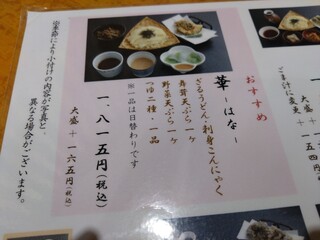 おすすめ
華 ーはなー
ざるうどん・刺身こんにゃく
舞茸天ぷら一ヶ
野菜天ぷら一ヶ
つゆ二種・一品
※一品は日替わりです
一、八一五円(税込)
大盛+一六五円(税込)
により小付けの内容が写真と、
異なる場合がございます。
ごま汁に変更+
大盛+一五四